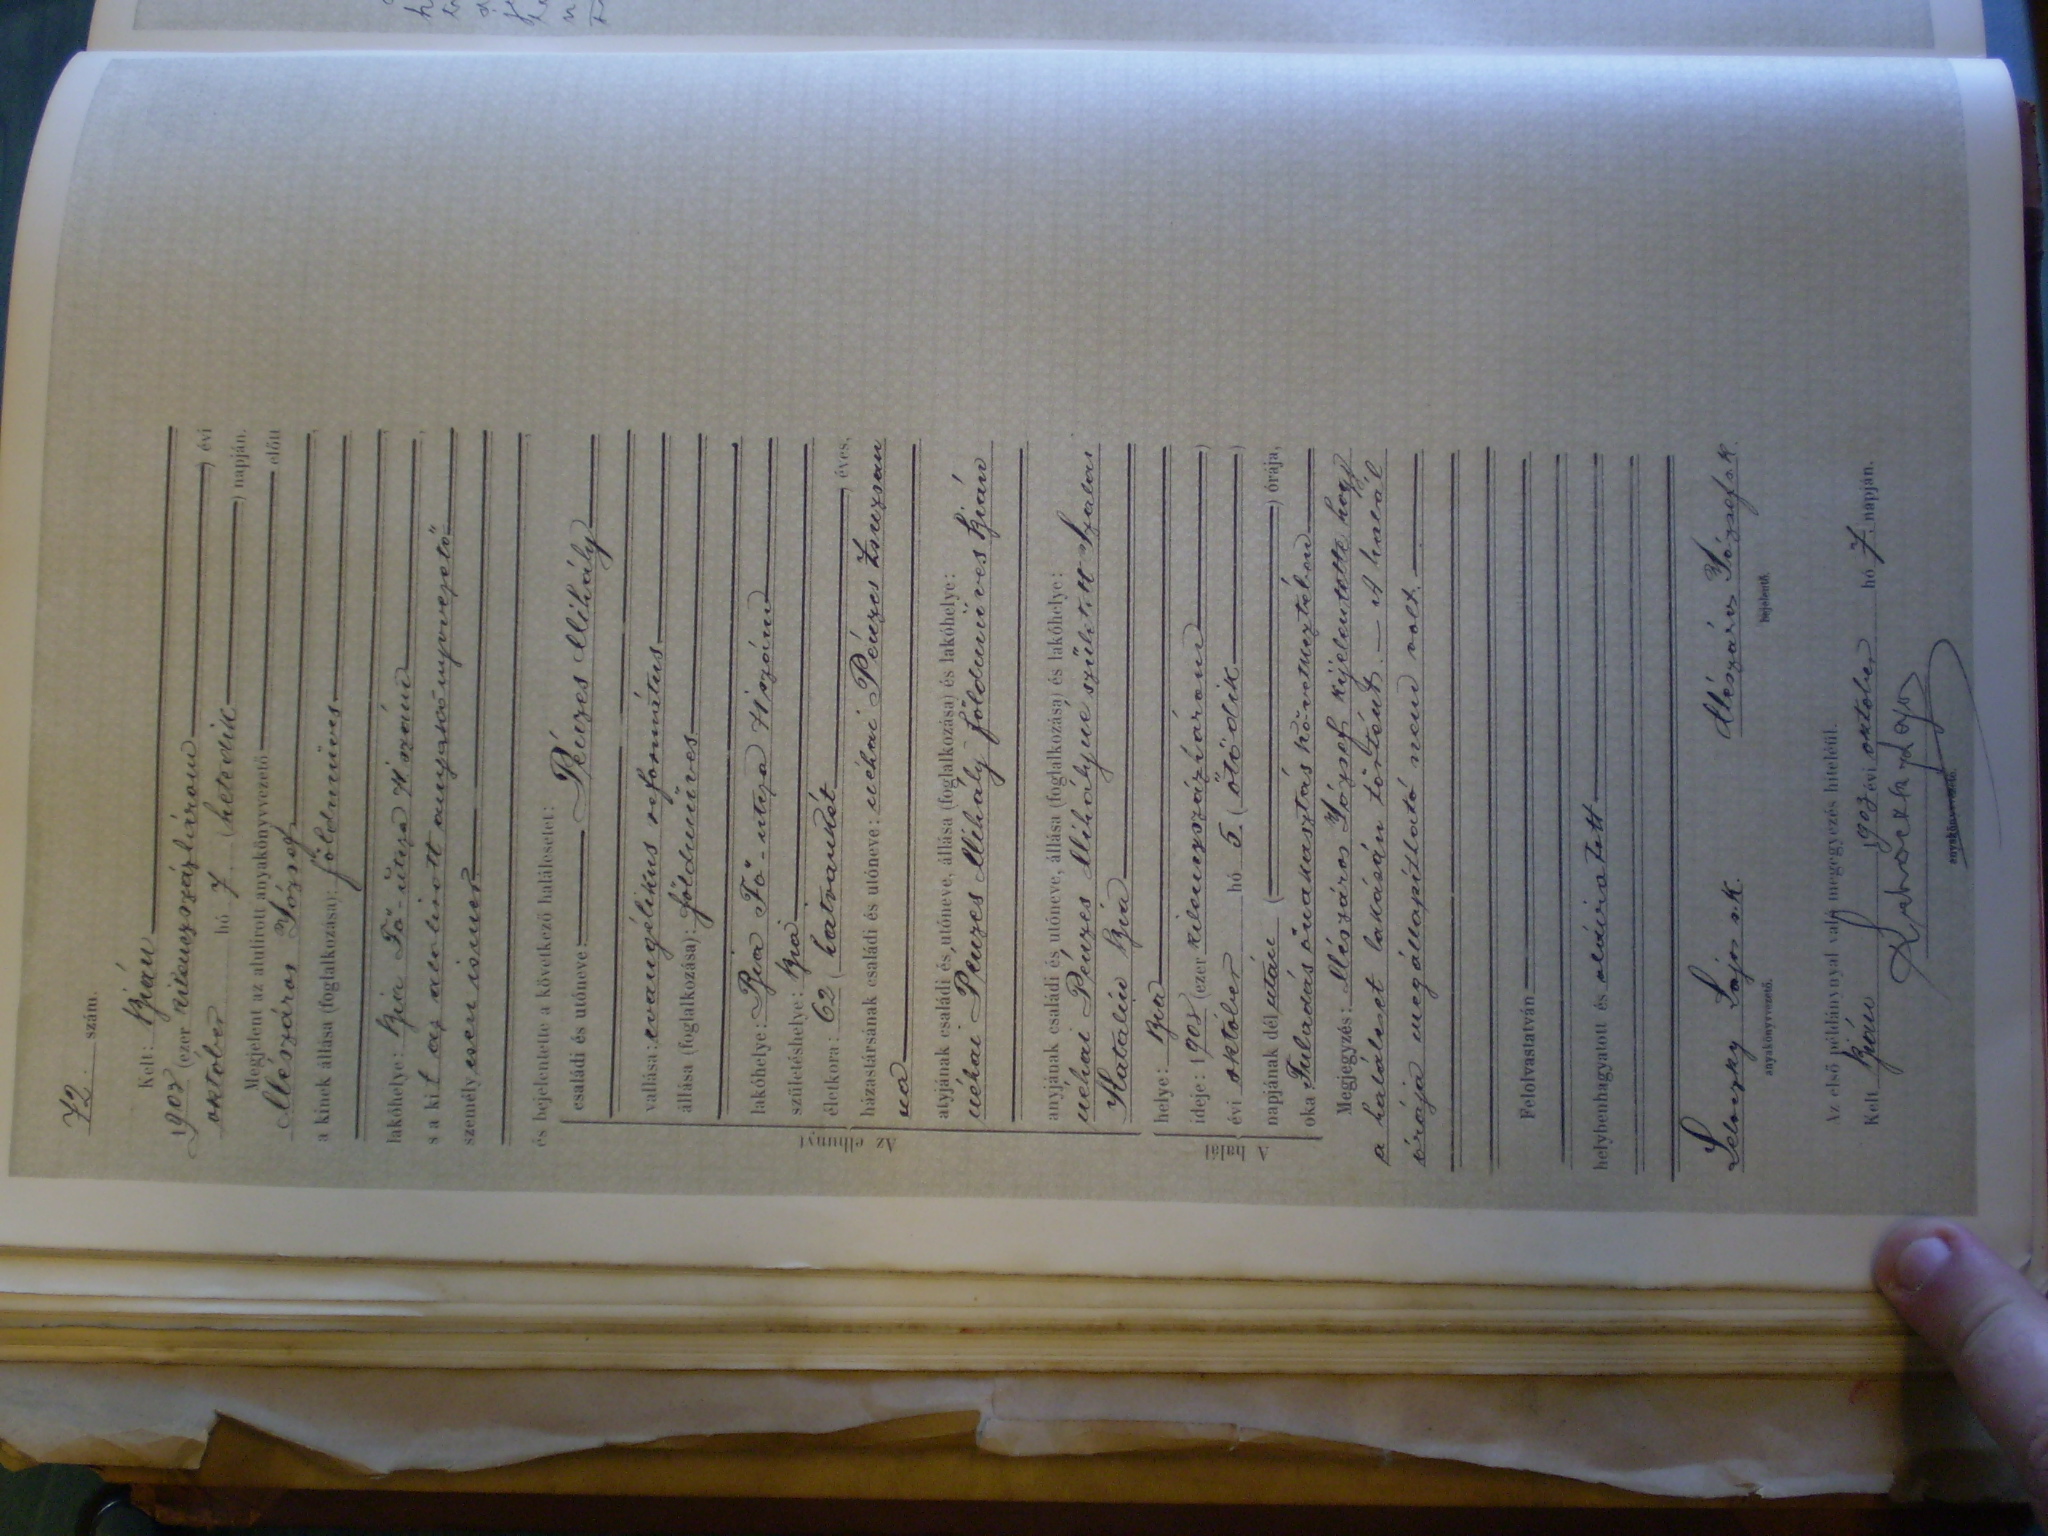 72. szám.
Kelt: Bián
1903 (ezer kilencszázhárom) évi
október hó 7 (hetedik) napján.
Megjelent az alulirott anyakönyvvezető előtt
Mészáros József
a kinek állása (foglalkozása): földmüves
lakóhelye: Bia Fő-utcza 71 szám
s a kit az alulirott anyakönyvvezető
személyesen ismer
és bejelentette a következő halálesetet:
Az elhunyt
családi és utóneve: Pénzes Mihály
vallása: evangélikus református
állása (foglalkozása): földmüves
lakóhelye: Bia Fő-utcza 71 szám
születéshelye: Bia
életkora: 62 (hatvankét) éves,
házastársának családi és utóneve: néhai Pénzes Zsuzsan
na
atyjának családi és utóneve, állása (foglalkozása) és lakóhelye:
néhai Pénzes Mihály földmüves Bián
anyjának családi és utóneve, állása (foglalkozása) és lakóhelye:
néhai Pénzes Mihályné született Szalai
Katalin Bia
A halál
helye: Bia
ideje: 1903 (ezer kilencszázhárom)
évi október hó 5. (ötödik)
napjának dél után ( ) órája,
oka Fuladás önakasztás következtében
Megjegyzés: Mészáros József kijelentette hogy
a haláleset lakásán történt. — A halál
órája megállapítható nem volt.
Felolvastatván
helybenhagyatott és aláiratott
Lajos sk. Mészáros József sk.
anyakönyvvezető. bejelentő.
Az első példánynyal való megegyezés hiteléül.
Kelt Bián 1903 évi október hó 7. napján.
anyakönyvvezető.